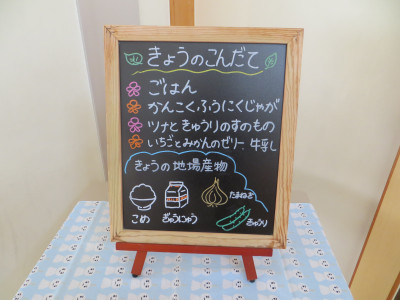 きょうのこんだて
ごはん
かんこくふうにくじゃが
ツナときゅうりのすのもの
いちごとみかんのゼリー、牛乳
きょうの地場産物
たまねぎ
こめ
ぎゅうにゅう
きゅうり